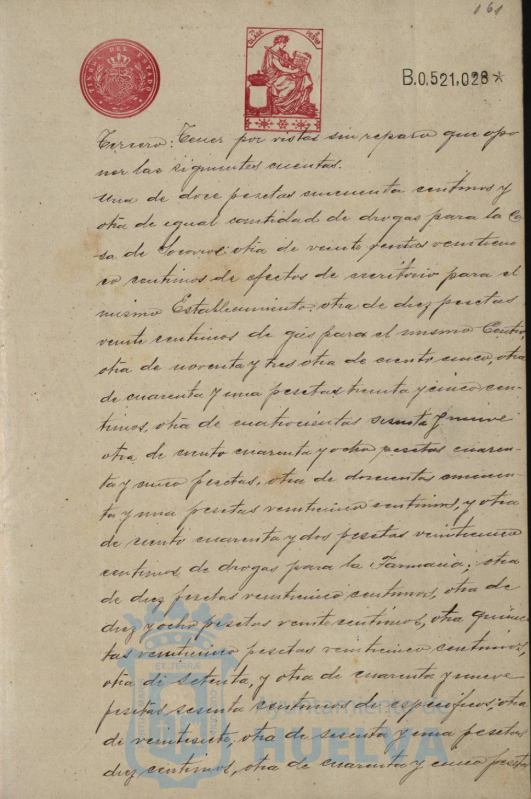 161
TIMBRE DEL ESTADO
B.0.521,028*
Tercero: Tener por vistas sin reparo que opo
ner las siguientes cuentas.
Una de doce pesetas cincuenta centimos y
otra de igual cantidad de drogas para la Ca
sa de Socorros: otra de veinte pesetas veinticin
co centimos de efectos de escritorio para el
mismo Establecimiento; otra de diez pesetas
veinte centimos de gas para el mismo Centro,
otra de noventa y tres otra de ciento cinco, otra
de cuarenta y una pesetas treinta y cinco cen-
timos, otra de cuatrocientas sesenta y nueve
otra de ciento cuarenta y ocho pesetas cuaren-
ta y cinco pesetas, otra de doscientas cincuen-
ta y una pesetas veinticinco centimos, y otra
de ciento cuarenta y dos pesetas veinticinco
centimos de drogas para la Farmacia; otra
de diez pesetas veinticinco centimos, otra de
diez y ocho pesetas veinte centimos, otra quinien
tas veinticinco pesetas veinticinco centimos,
otra de setenta, y otra de cuarenta y nueve
pesetas sesenta centimos de especificos; otra
de veintisiete, otra de sesenta y una pesetas
diez centimos, otra de cuarenta y cinco pesetas
Ayuntamiento de
HUELVA